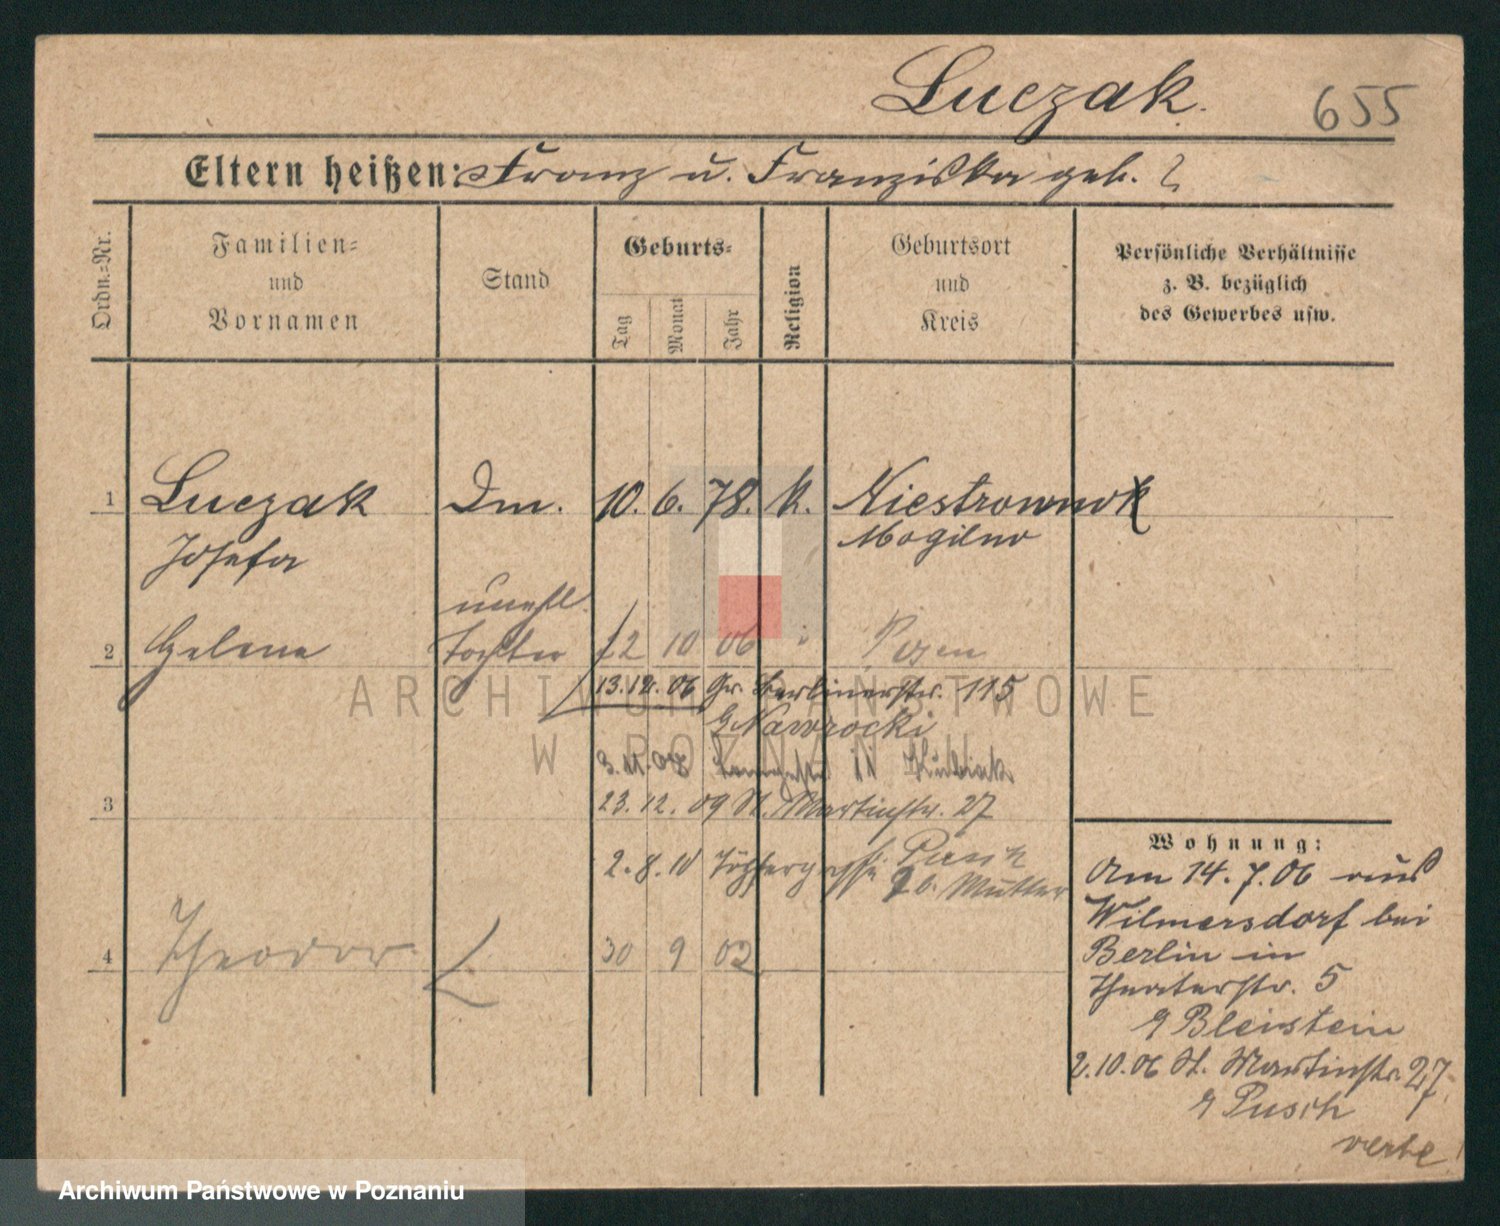 Luczak.
655
Eltern heißen: Franz u. Franziska geb. ?
Ordn.=Nr.
Familien=
und
Vornamen
Stand
Geburts=
Tag
Monat
Jahr
Religion
Geburtsort
und
Kreis
Persönliche Verhältnisse
z. B. bezüglich
des Gewerbes usw.
1 Luczak Dm. 10. 6. 78. k. Niestronnok
Josefa Mogilno
unehl.
2 Helene Tochter 12 10 06 Posen
13.12.06 Gr. Berlinerstr. 115
b/Nawrocki
3.11.08 11
3
23.12.09 St. Martinstr. 27
2.8.10 Töpfergasse
b. Mutter
4 Theodor 30 9 02
Wohnung:
Am 14.7.06 aus
Wilmersdorf bei
Berlin in
Theaterstr. 5
Bleistein
2.10.06 St. Martinstr. 27
Pusch
ARCHIWUM PAŃSTWOWE
W POZNANIU
Archiwum Państwowe w Poznaniu